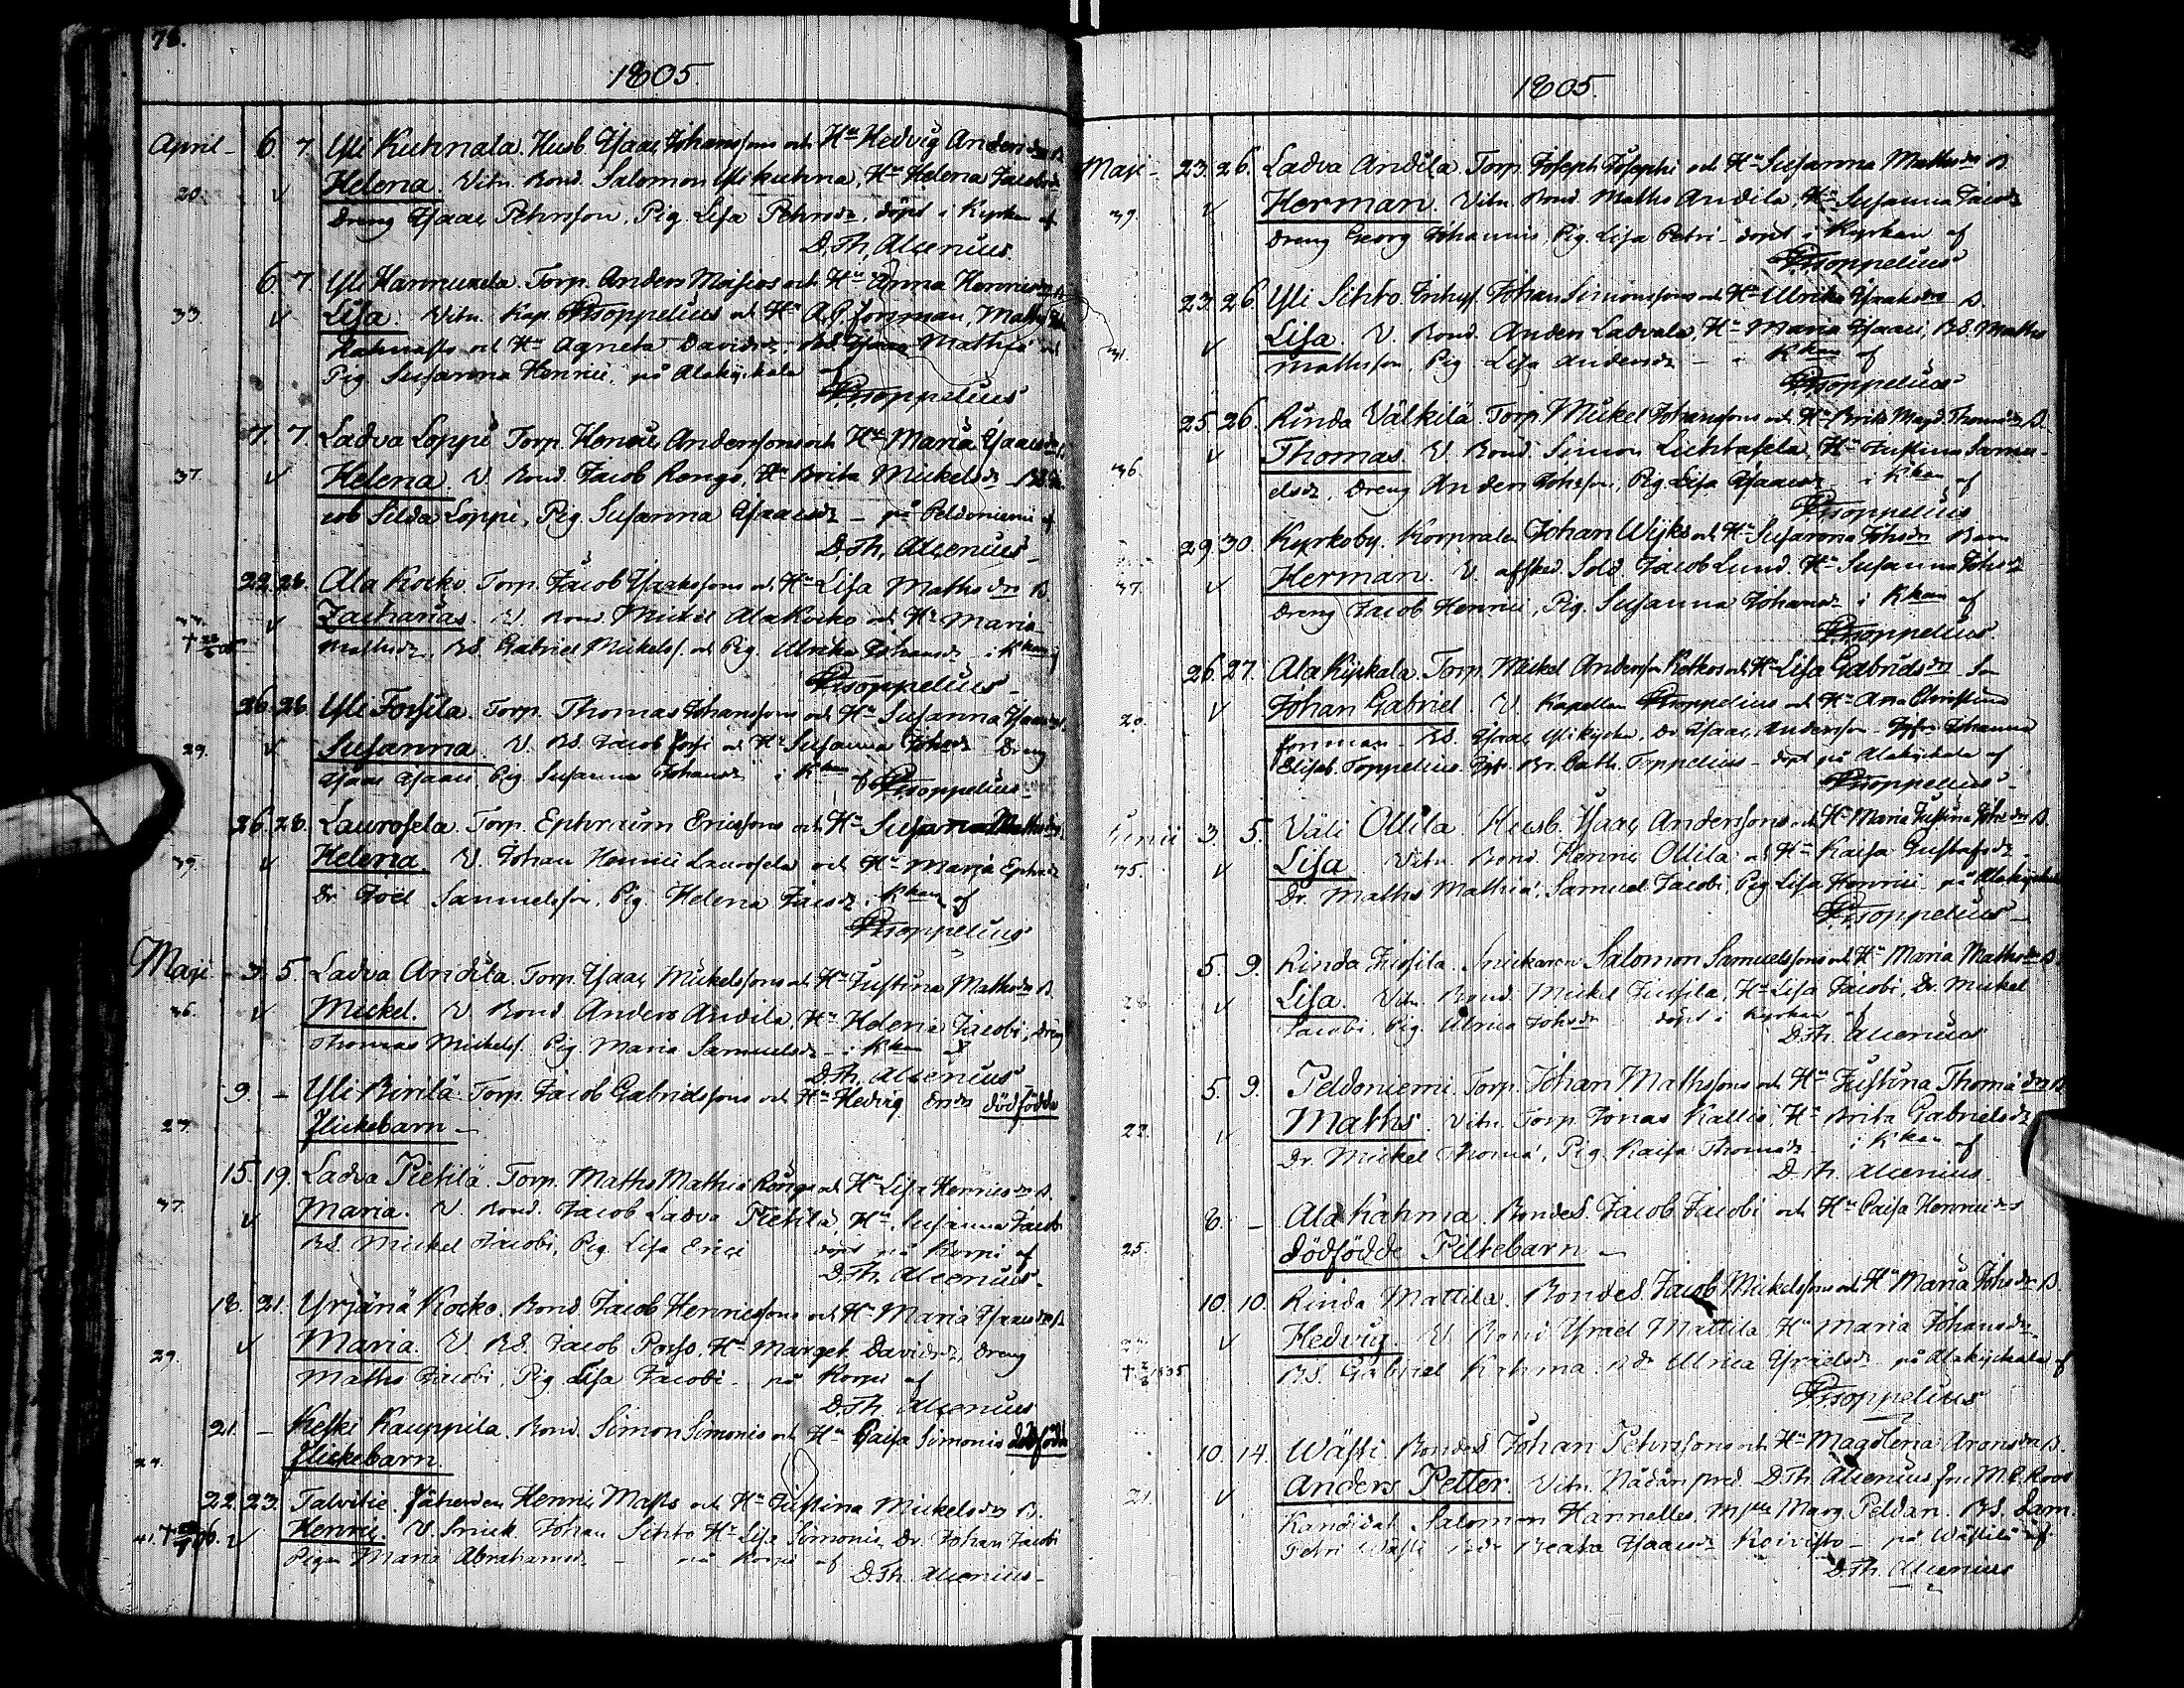 78.
1805.
April - 6. 7. Yli Kuhnala. Husb. Isaac Johanssons och Hu Hedvig Anders dr B.
20. v Helena. Vitn. Bond. Salomon Yli Kuhna, Hu Helena Jacobsdr
Dreng Isaac Pehrsson, Pig. Lisa Pehrsdr, döpt i Kyrkan af
D. Th. Alcenius.
6. 7. Yli Hannuxela. Torp. Anders Moisios och Hu Anna Henrics dr B
33. v Lisa. Vitn. Kap. Toppelius och Hu A C Forsman, Maths
och Hu Agneta Davidsdr, Mathiæ och
Pig. Susanna Henrici, på Alakyckala af
Toppelius
7. 7. Ladva Loppi Torp. Henric Anderssons och Hu Maria Isaacs dr B.
37. v Helena. V. Bond. Jacob Rongo, Hu Brita Mickelsdr BS. Ja-
cob Silda Loppi, Pig. Susanna Isaacsdr - på Peldoniemi af
D. Th. Alcenius
22. 28. Ala Kocko. Torp. Jacob Isaakssons och Hu Lisa Maths drs B.
v Zacharias. V. Bond. Mickel Ala Kocko och Hu Maria
Mathsdr, BS. Gabriel Mickels. och Pig. Ulrika Johansdr - i Kkan af
Toppelius
26. 28. Yli Fossila. Torp. Thomas Johanssons och Hu Susanna Isaacsdr
29. v Susanna. V. BS. Jacob Fossi och Hu Susanna Johsdr Dreng
Isaac Isaaci, Pig. Susanna Johansdr i Kkan af Toppelius
26. 28. Laurosela. Torp. Ephraim Ericssons och Hu Susanna Mathsdrs
39. v Helena. V. Johan Henrici Laurosela och Hu Maria Ephr. dr
Dr Joël Samuelsson, Pig. Helena Jacsdr, i Kkan af
Toppelius
Maji - 3. 5. Ladva Andila. Torp. Isaac Mickelssons och Hu Justina Maths dr B.
36. v Mickel. V. Bond Anders Andila, Hu Helena Jacobi, Dreng
Thomas Mickels. Pig. Maria Samuelsdr - i Kkan af
D. Th. Alcenius
9. - Yli Birilä. Torp. Jacob Gabrielssons och Hu Hedvig dödfödda
27. Flickebarn -
15. 19. Ladva Pietilä. Torp. Maths Mathiæ Röngö och Hu Lisa Henrics dr B.
37. v Maria. V. Bond. Jacob Ladva Pietilä Hu Susanna Jacobi
BS. Mickel Jacobi, Pig. Lisa Erici döpt på Korpi af
D. Th. Alcenius
18. 21. Yrjänä Kocko. Bond Jacob Henricssons och Hu Maria Isaacsdr B
29. v Maria. V. BS. Jacob Porso, Hu Marget. Davidsdr, Dreng
Maths Jacobi, Pig. Lisa Jacobi - på Korpi af
D. Th. Alcenius
21. - Keski Kauppila. Bond. Simon Simonis och Hu Caisa Simonis dödfödda
24. Flickebarn.
22. 23. Talvitie. Henric Maths och Hu Justina Mickels dr B.
41. v Henric. V. Snick. Johan Sihto Hu Lisa Simonis, Dr. Johan Jacobi
Pigan Maria Abrahamsdr - på Korpi af
D. Th. Alcenius -
1805.
Maji - 23. 26. Ladva Andila. Torp. Joseph Josephi och Hu Susanna Mathsdr B
39. v Herman. Vitn. Bond. Maths Andila, Hu Susanna Jacobsdr
Dreng Georg Johannis, Pig. Lisa Petri - döpt i Kyrkan af
Toppelius
23. 26. Yli Sihto. Inhys. Johan Simonssons och Hu Ulrika Isaaksdr B.
31. v Lisa. V. Bond. Anders Ladvala, Hu Maria Isaaci, BS. Maths
Mathsson, Pig. Lisa Andersdr - i Kkan af
Toppelius
25. 26. Rinda Välkilä. Torp. Mickel Johanssons och Hu Brita Magd. Thomædr B.
36. v Thomas V. Bond. Simon Lichtasela, Hu Justina Samu-
elsdr, Dreng Anders Johsson, Pig. Lisa Isaacsdr - i Kkan af
Toppelius
29. 30. Kyrkoby. Korpralen Johan Wijks och Hu Susanna Johsdr Barn
37. v Herman. V. afsked. Sold. Jacob Lund. Hu Susanna Johsdr
Dreng Jacob Henrici, Pig. Susanna Johansdr i Kkan af
Toppelius
26. 27. Ala Kyckala. Torp. Mickel Andersson Ketkos och Hu Lisa Gabriels dr Son
20. v Johan Gabriel. V. Kapellan Toppelius och Hu Ana Christina
Forsman - BS. Isaac Ylikyckä, Dr Isaac Andersson - Johanna
Elisab. Toppelius. Br. Cath. Toppelius - döpt på Alakyckala af
Toppelius
Junii 3. 5. Väli Ollila. Husb. Isaac Anderssons och Hu Maria Justina Johs dr B.
35. v Lisa Vitn. Bond Henric Ollila och Hu Kaisa Gustafsdr -
Dr. Maths Mathiæ, Samuel Jacobi, Pig. Lisa Henrici på Alakyckala
Toppelius
5. 9. Rinda Jussila. Snickaren Salomon Samuelssons och Hu Maria Maths dr B.
28. v Lisa. Vitn. Bond Mickel Jussila, Hu Lisa Jacobi, Dr. Mickel
Jacobi, Pig. Ulrica Johsdr döpt i Kyrkan af
D. Th. Alcenius
5. 9. Peldoniemi Torp. Johan Mathssons och Hu Justina Thomæ dr B
22. v Maths. Vitn. Torp. Jonas Kallio, Hu Brita Gabrielsdr
Dr. Mickel Thomæ, Pig. Kaisa Thomædr i Kkan af
D. Th. Alcenius.
8. - Ala Kahma. BondeS. Jacob Jacobi och Hu Caisa Henricidrs
25. dödfödde Piltebarn -
10. 10. Rinda Mattila. BondeS. Jacob Mickelssons och Hu Maria Johsdr B.
v Hedvig. V. Bond Israel Mattila Hu Maria Johansdr
† 1835 BS. Gabriel Kahma Ulrica Israelsdr på Alakyckala af
Toppelius
10. 14. Wästi. BondeS. Johan Pehrssons och Hu Magdlena Aronsdr B.
21. v Anders Petter. Vitn. Nådårs pred. D Th. Alcenius fru M. C. Roos
Kandidat Salomon Hannelles, Marg. Peldan. BS. Sam.
Petri Wästi Beata Isaacsdr Koivisto - på Wästilä af
D. Th. Alcenius